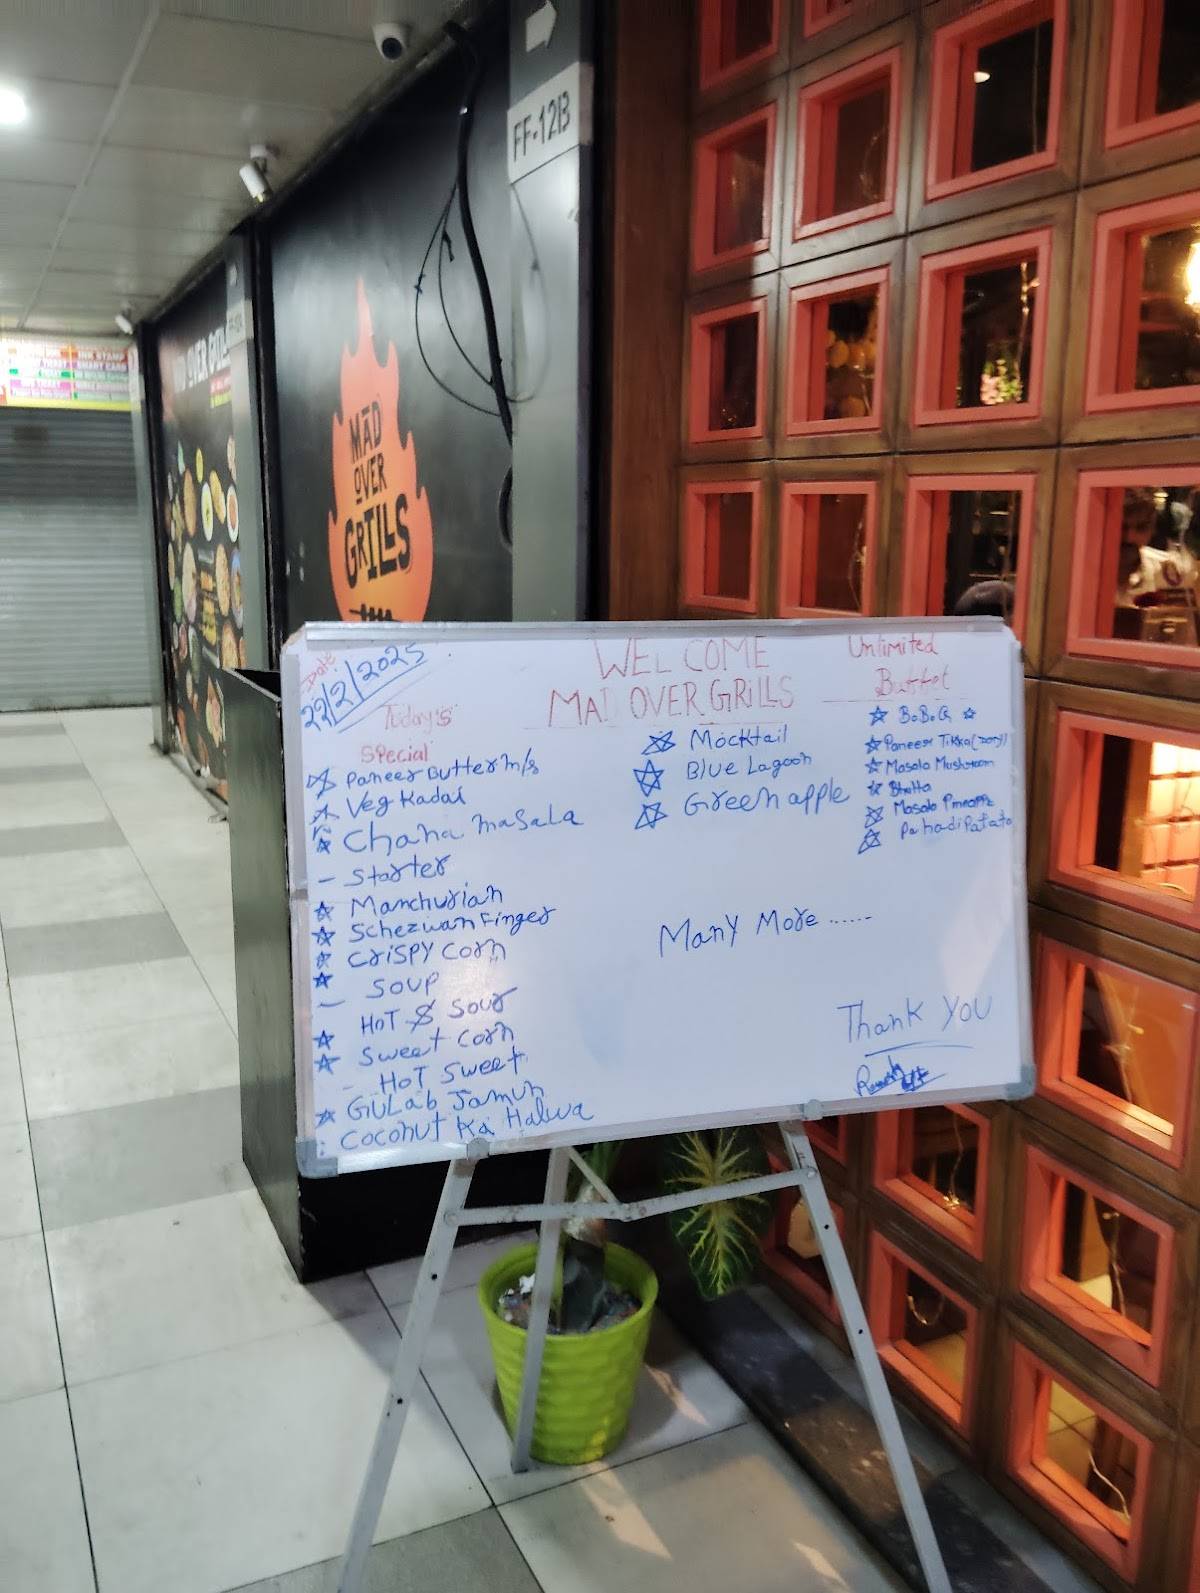 FF-12B
MAD OVER GRILLS
INK STAMP
SMART CARD
MAD
OVER
GRILLS
Date
22/2/2025
WEL COME
MAD OVER GRILLS
Unlimited
Buffet
Today's
Special
Paneer Butter m/s
Veg Kadai
Chana masala
- Starter
Manchurian
Schezwan Finger
Crispy Corn
- Soup
HoT & Sour
Sweet Corn
- HoT Sweet
GULab Jamun
Coconut Ka Halwa
Mocktail
Blue Lagoon
Green apple
B.B.Q
Paneer Tikka
Masala Mushroom
Bhutta
Masala Pineapple
Pahadi Patato
Many More ......
Thank You